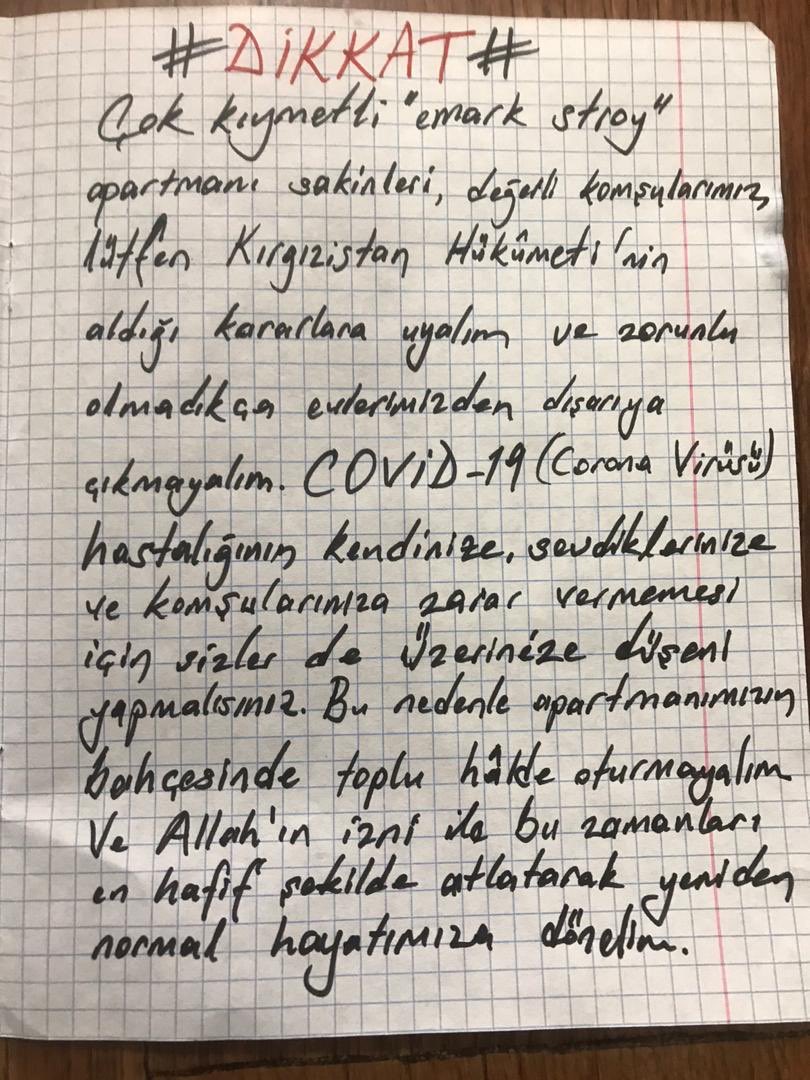 #DİKKAT#
Çok kıymetli "emark stroy"
apartmanı sakinleri, değerli komşularımız,
lütfen Kırgızistan Hükûmeti'nin
aldığı kararlara uyalım ve zorunlu
olmadıkça evlerimizden dışarıya
çıkmayalım. COViD-19 (Corona Virüsü)
hastalığının kendinize, sevdiklerinize
ve komşularınıza zarar vermemesi
için sizler de üzerinize düşeni
yapmalısınız. Bu nedenle apartmanımızın
bahçesinde toplu hâlde oturmayalım
Ve Allah'ın izni ile bu zamanları
en hafif şekilde atlatarak yeniden
normal hayatımıza dönelim.